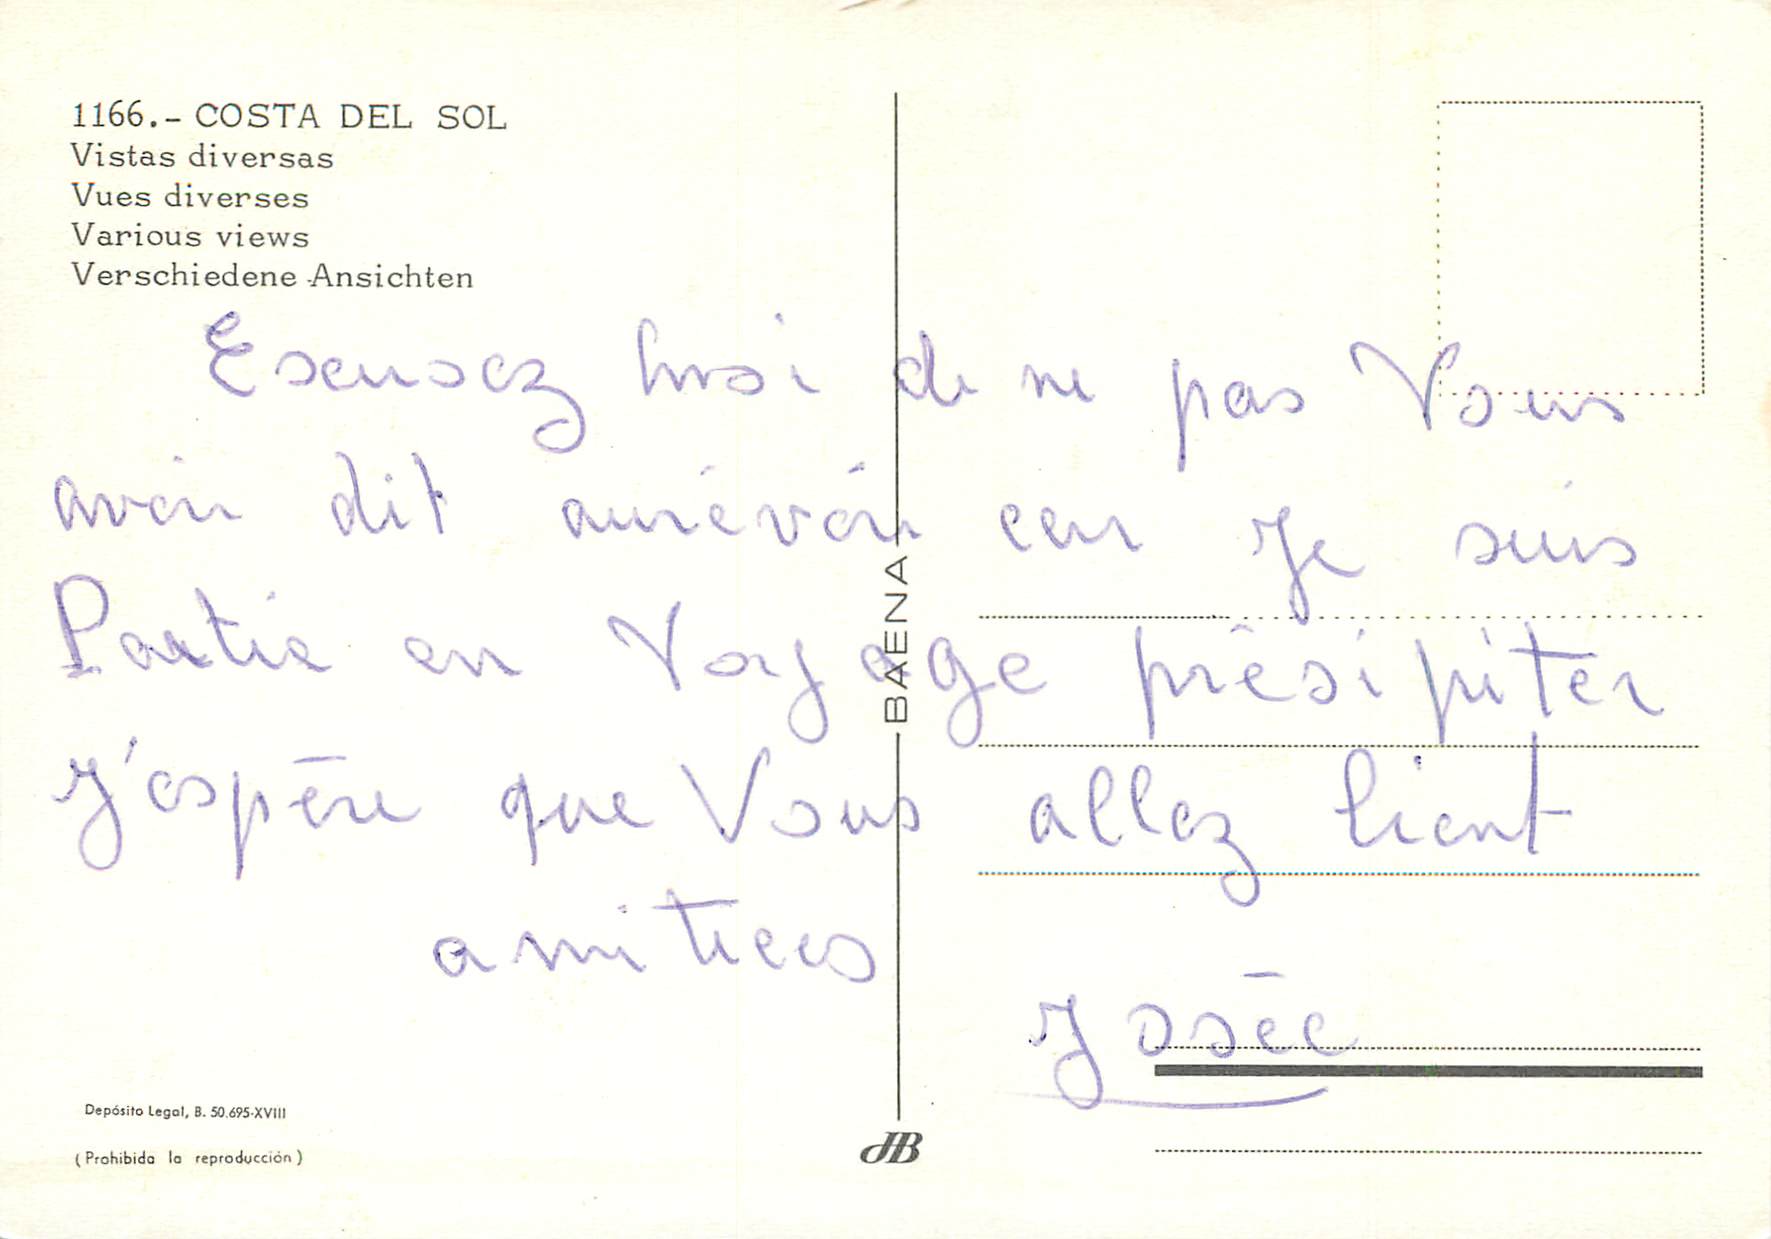 1166.- COSTA DEL SOL
Vistas diversas
Vues diverses
Various views
Verschiedene Ansichten
Escusez moi de ne pas Vous
avoir dit aurévoir car Je suis
Partie en Voyage présipiter
J'espère que Vous allez bient
amitiees
Josée
BAENA
Depósito Legal, B. 50.695-XVIII
(Prohibida la reproducción)
JB